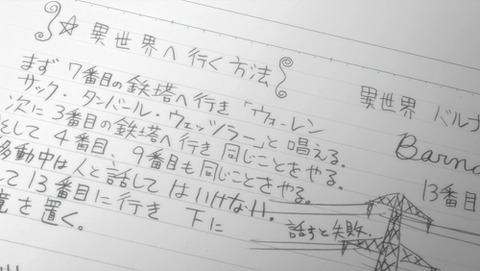 ☆ 異世界へ行く方法
まず 7番目の鉄塔へ行き「ウォーレン
サック・タンバール・ウェッツラー」と唱える.
次に 3番目の鉄塔へ行き同じことをやる.
そして 4番目、9番目も同じことをやる.
移動中は人と話してはいけない!!.
話すと失敗.
して13番目に行き 下に
を置く。
異世界 バルナ
Barna
13番目